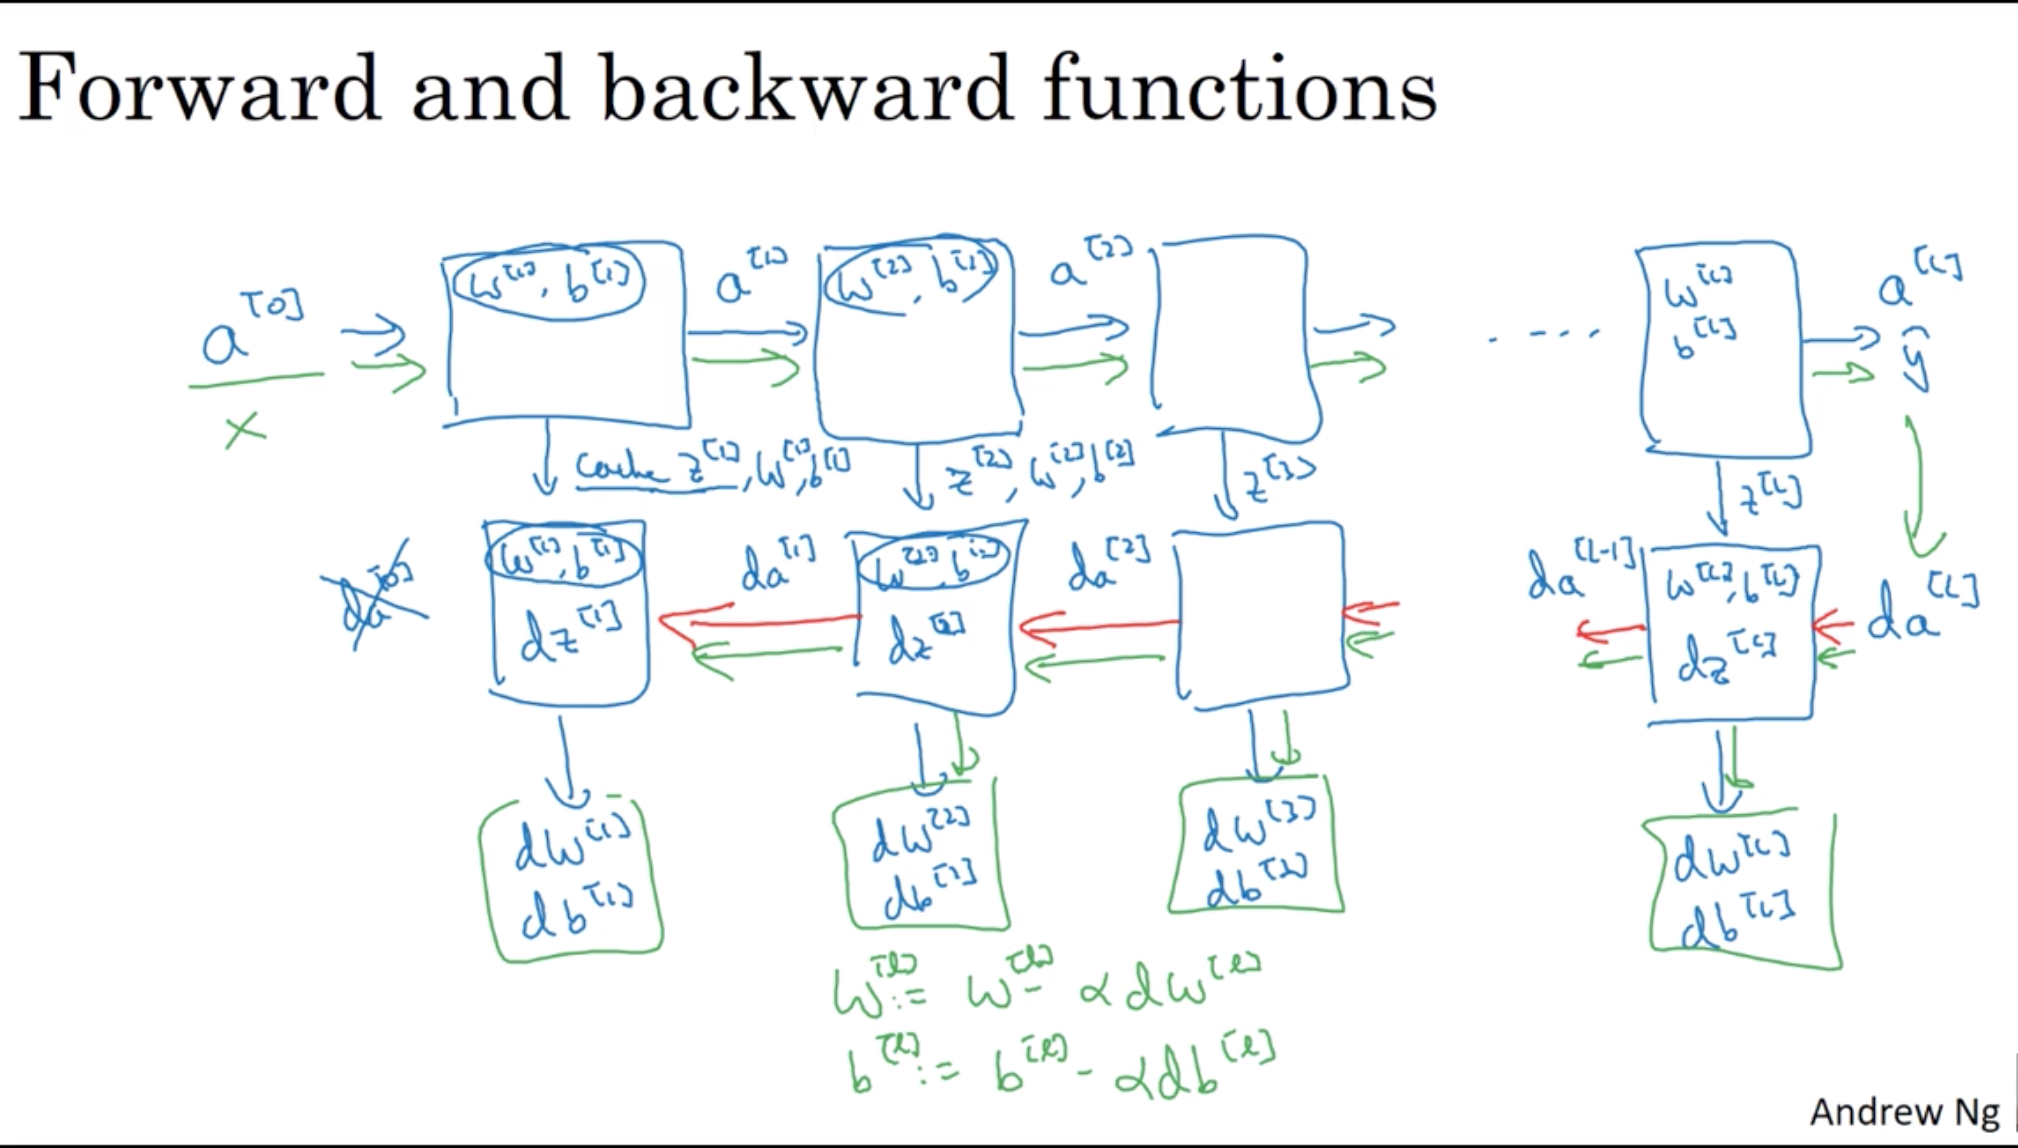 Forward and backward functions
a^[0] w^[1], b^[1] a^[1] w^[2], b^[1] a^[2] w^[L] a^[L]
x b^[L] ŷ
cache z^[1], w^[1], b^[1] z^[2], w^[2], b^[2] z^[3] z^[L]
da^[0] w^[1], b^[1] da^[1] w^[2], b^[2] da^[2] da^[L-1] w^[L], b^[L] da^[L]
dz^[1] dz^[2] dz^[L]
dw^[1] dw^[2] dw^[3] dw^[L]
db^[1] db^[2] db^[3] db^[L]
W^[l] := W^[l] - αdw^[l]
b^[l] := b^[l] - αdb^[l]
Andrew Ng